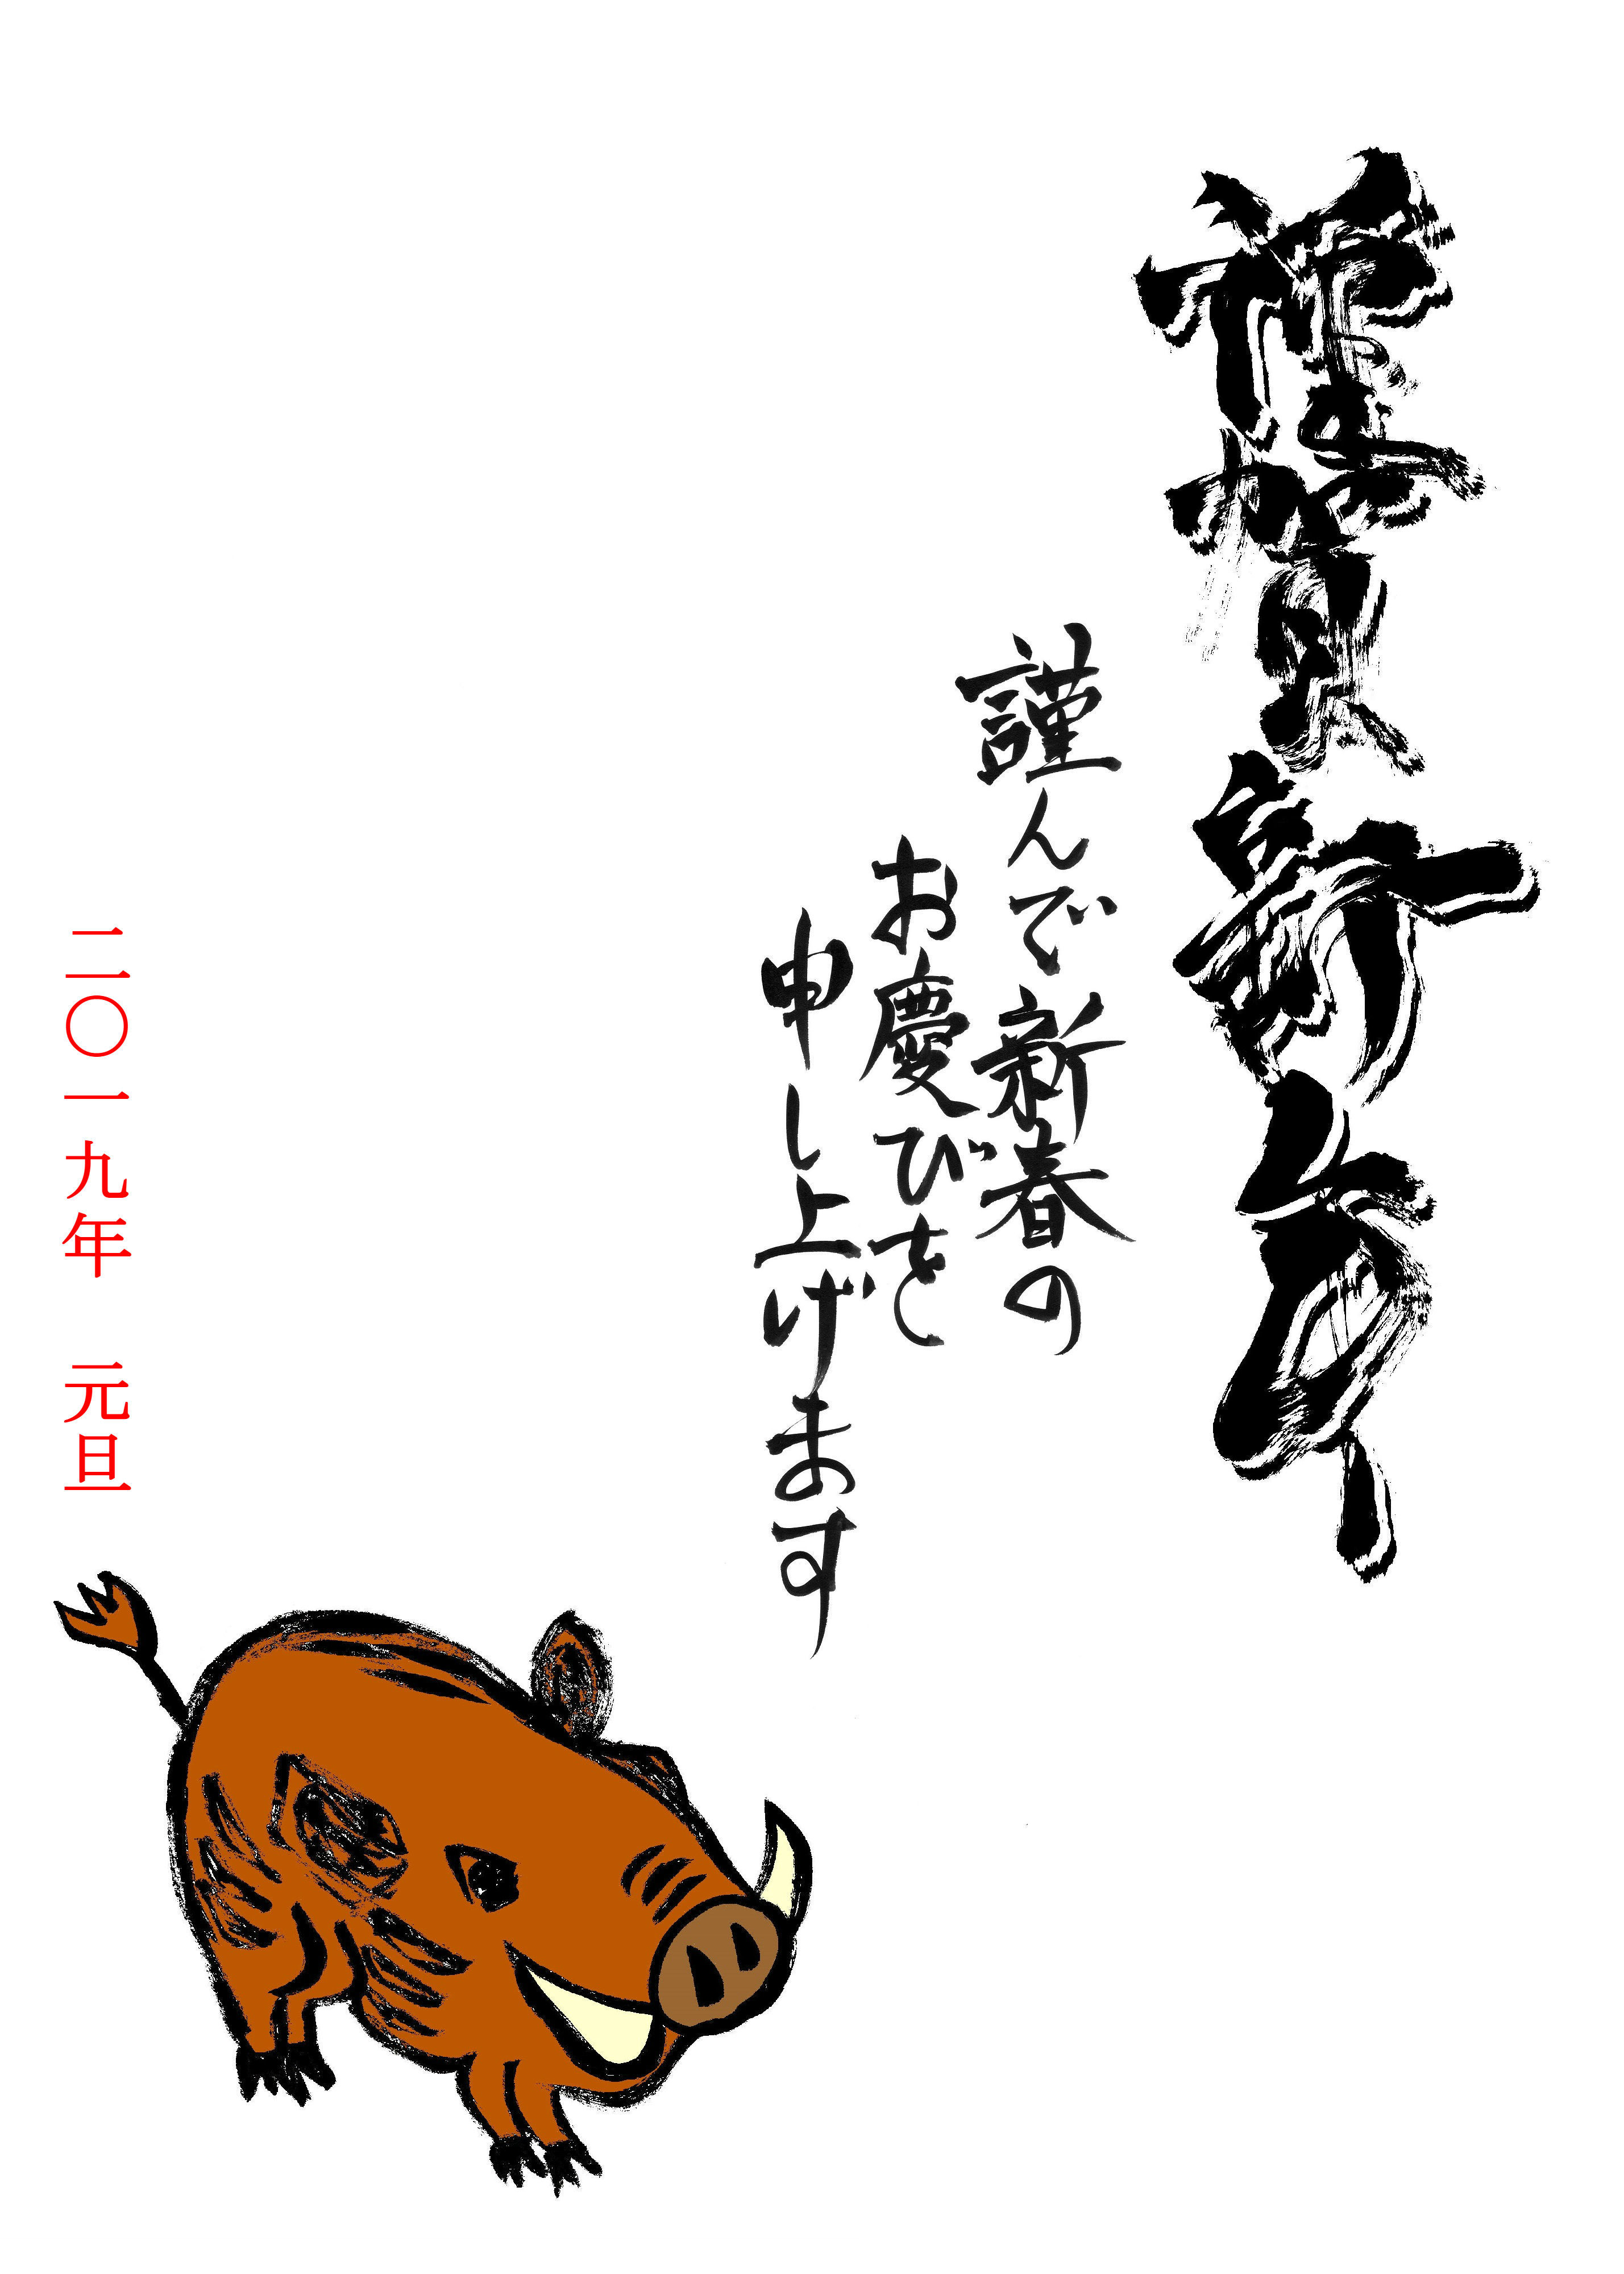 謹賀新年
謹んで新春の
お慶びを
申し上げます
二〇一九年　元旦